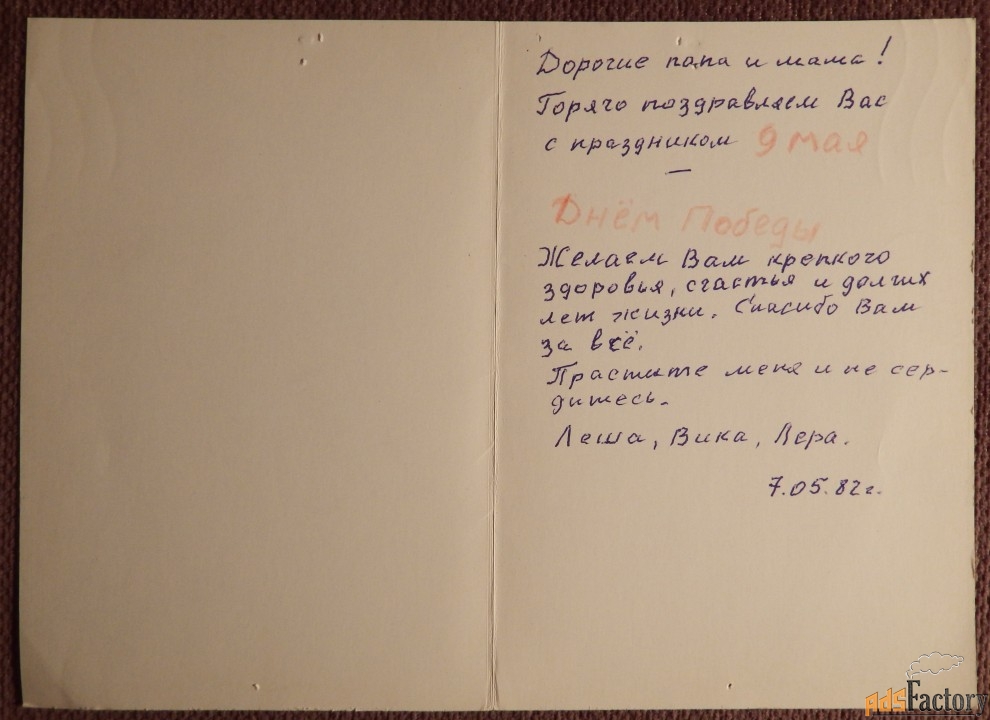 Дорогие папа и мама!
Горячо поздравляем Вас
с праздником 9 мая
—
Днём Победы
Желаем Вам крепкого
здоровья, счастья и долгих
лет жизни. Спасибо Вам
за всё.
Прастите меня и не сер-
дитесь.
Леша, Вика, Лера.
7.05.82г.
AdsFactory